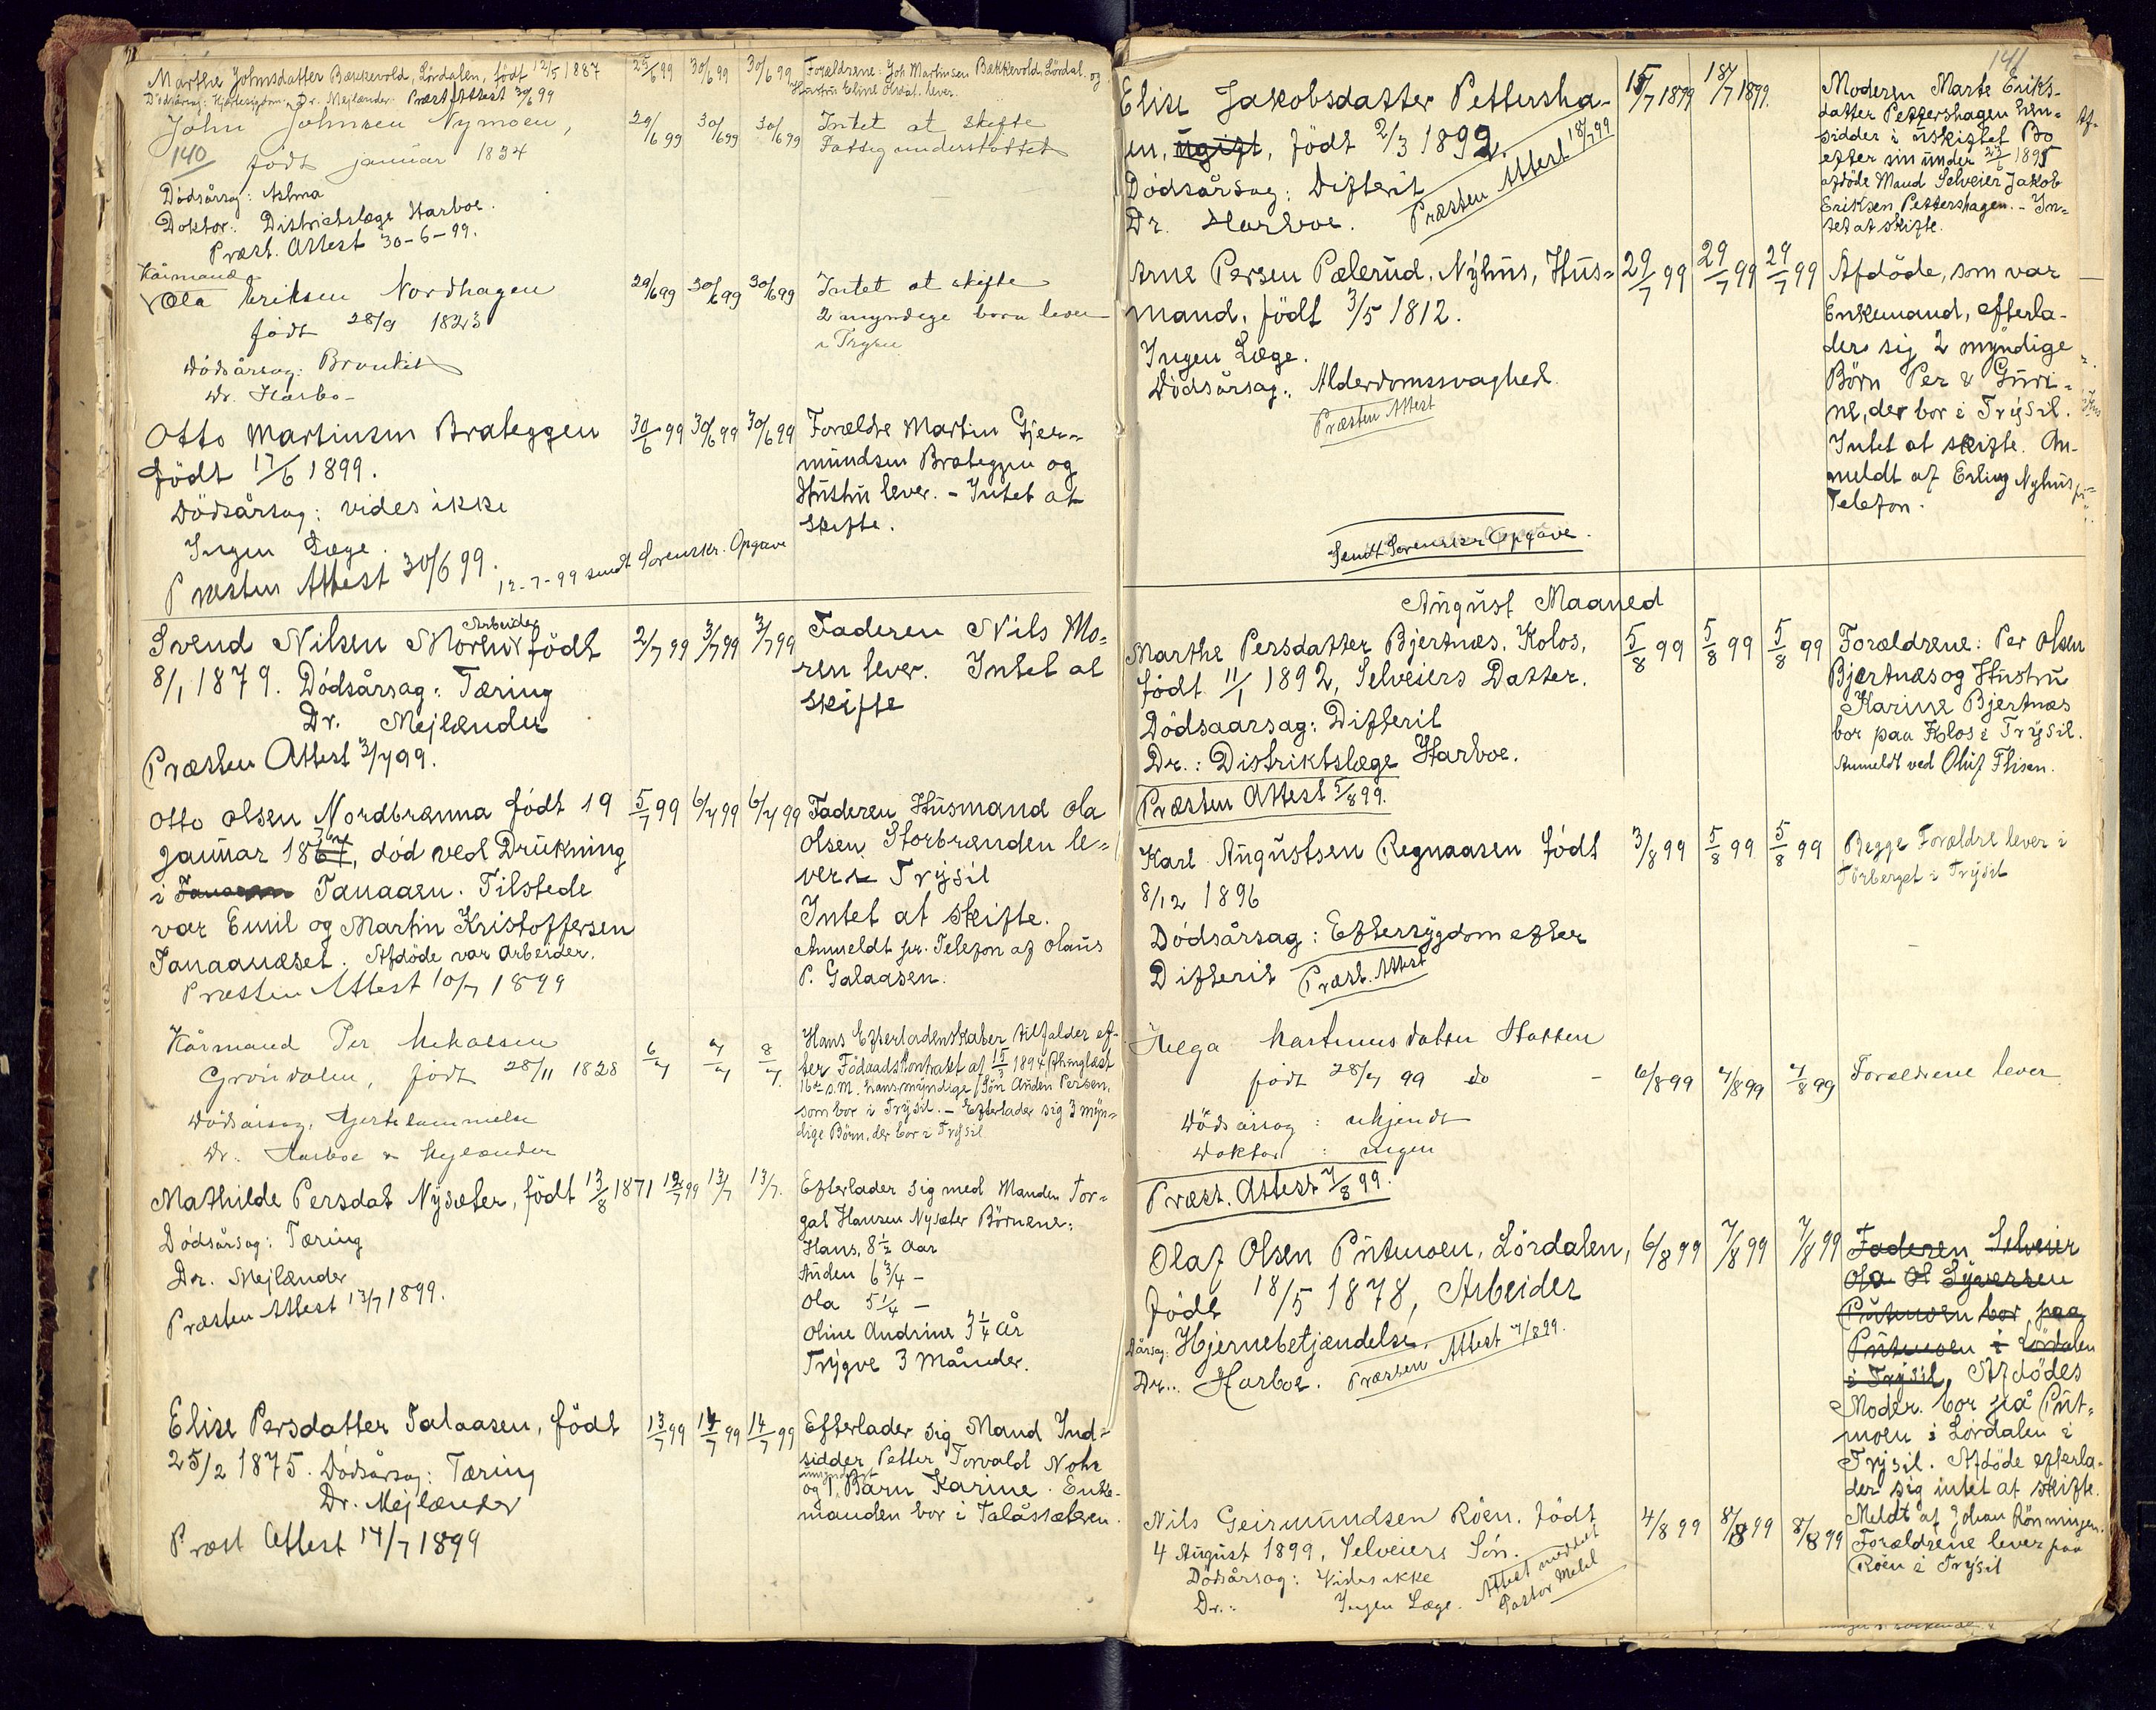 Marthe Johnsdatter Bækkevold, Lördalen, född 12/5 1887 25/6 99 30/6 99 30/6 99 Forældrene: Joh Martinsen Bækkevold, Lördal. og
Dödsårsag: Hjertesygdom. Dr. Mejlænder. Præst Attest 30/6 99 Hustru Eline Olsdat. lever.
John Johnsen Nymoen, 29/6 99 30/6 99 30/6 99 Intet at skifte
140 född januar 1834 Fattigunderstöttet
Dödsårsag: Astma
Doktor: Distriktslæge Harboe.
Præst. Attest 30-6-99.
Kårmand
Ola Eriksen Nordhagen 29/6 99 30/6 99 30/6 99 Intet at skifte
födt 28/9 1823 2 myndige børn lever
i Trysil
Dödsårsag: Bronkit
Dr. Harbo
Otto Martinsen Brateggen 30/6 99 30/6 99 30/6 99 Forældre Martin Gjer-
födt 17/6 1899. mundsen Brateggen og
Dödsårsag: vides ikke Hustru lever. - Intet at
Ingen Læge. skifte.
Præsten Attest 30/6 99. 12-7-99 sendt Sorenskr. Opgave
Svend Nilsen Moren Arbeider födt 2/7 99 3/7 99 3/7 99 Faderen Nils Mo-
8/1 1879. Dödsårsag: Tæring ren lever. Intet at
Dr. Mejlænder skifte
Præsten Attest 3/7 99.
Otto Olsen Nordbrænna födt 19 5/7 99 6/7 99 6/7 99 Faderen Husmand Ola
Januar 18, död ved Drukning Olsen Storbrænden le-
i Tanaaen. Tilstede ver i Trysil
var Emil og Martin Kristoffersen Intet at skifte.
Tanaanæset. Afdöde var Arbeider. Anmeldt pr. Telefon af Olaus
Præsten Attest 10/7 1899 P. Galaasen.
Kårmand Per 6/7 7/7 8/7 Hans Efterladenskaber tilfalder ef-
Gröndalen, födt 28/11 1828 ter Födeaadskontrakt af 15/3 1894, thinglæst
16de s.M. hans myndige Sön Auden Persen,
som bor i Trysil. - Efterlader sig 3 myn-
Dödsårsag, Hjertelammelse dige Börn, der bor i Trysil
Dr. Harboe & Mejlænder
Mathilde Persdat Nysæter, födt 13/8 1871 12/7 99 13/7 13/7. Efterlader sig med Manden Tor-
Dödsårsag: Tæring gal Hansen Nysæter Börnene:
Dr. Mejlænder Hans, 8 1/2 Aar
Præsten Attest 13/7 1899. Auden 6 3/4 -
Ola 5 1/4 -
Oline Andrine 3 1/4 År
Trygve 3 Måneder.
Elise Persdatter Talaasen, födt 13/7 99 14/7 99 14/7 99 Efterlader sig Mand Ind-
25/2 1875. Dödsårsag: Tæring sidder Petter Torvald Nohr
Dr. Mejlænder og 1 umyndigt Barn Karine. Enke-
Præst Attest 14/7 1899 manden bor i Talåssæteren.
141
Elise Jakobsdatter Pettersha- 15/7 1899 18/7 1899. Moderen Marte Eriks-
en, ugift, födt 2/3 1892. datter Pettershagen hen-
Dödsårsag: Difterit sidder i uskiftet Bo
Dr. Harboe. Præsten Attest 18/7 99 efter sin under 23/2 1895
afdöde Mand Selveier Jakob
Eriksen Pettershagen. - In-
tet at skifte.
Arne Persen Pælerud, Nyhus, Hus- 29/7 99 29/7 99 29/7 99 Afdöde, som var
mand, födt 3/5 1812. Enkemand, efterla-
Ingen Læge. der sig 2 myndige
Dödsårsag: Alderdomssvaghed. Börn Per & Guri-
Præsten Attest ne, der bor i Trysil.
Intet at skifte. An-
meldt af Erling Nyhus pr
Telefon.
Sendt Sorenskr Opgave.
August Maaned
Marthe Persdatter Bjertnæs, Kolos, 5/8 99 5/8 99 5/8 99 Forældrene: Per Olsen
födt 11/1 1892, Selveiers Datter. Bjærtnæs og Hustru
Dödsaarsag: Difterit Karine Bjertnæs
Dr.: Distriktslæge Harboe. bor paa Kolos i Trysil.
Præsten Attest 5/8 99. Anmeldt ved Oluf Flisen.
Karl Augustsen Regnaasen födt 3/8 99 5/8 99 5/8 99 Begge Forældre lever i
8/12 1896 Törberget i Trysil
Dödsårsag: Eftersygdom efter
Difterit Præst. Attest
Helga Martinusdatter
födt 28/7 99 do - 6/8 99 7/8 99 7/8 99 Forældrene lever
Dödsårsag: ukjendt
Doktor: ingen
Præst. Attest 7/8 99.
Olaf Olsen Putmoen, Lördalen, 6/8 99 7/8 99 7/8 99 Faderen Selveier
födt 18/5 1878, Arbeider Ola Ol Syversen
Dårsag: Hjernebetjændelse. Putmoen bor paa
Dr.. Harboe. Præsten Attest 7/8 99. Putmoen i Lördalen
i Trysil. Afdödes
Moder bor på Put-
moen i Lördalen i
Trysil. Afdöde efterla-
der sig intet at skifte.
Meldt af Johan Rönningen.
Nils Geirmundsen Röen. födt 4/8 99 8/8 99 8/8 99 Forældrene lever paa
4 August 1899, Selveiers Sön. Röen i Trysil
Dödsårsag: Vides ikke
Dr.: Ingen Læge. Attest meddelt
Pastor